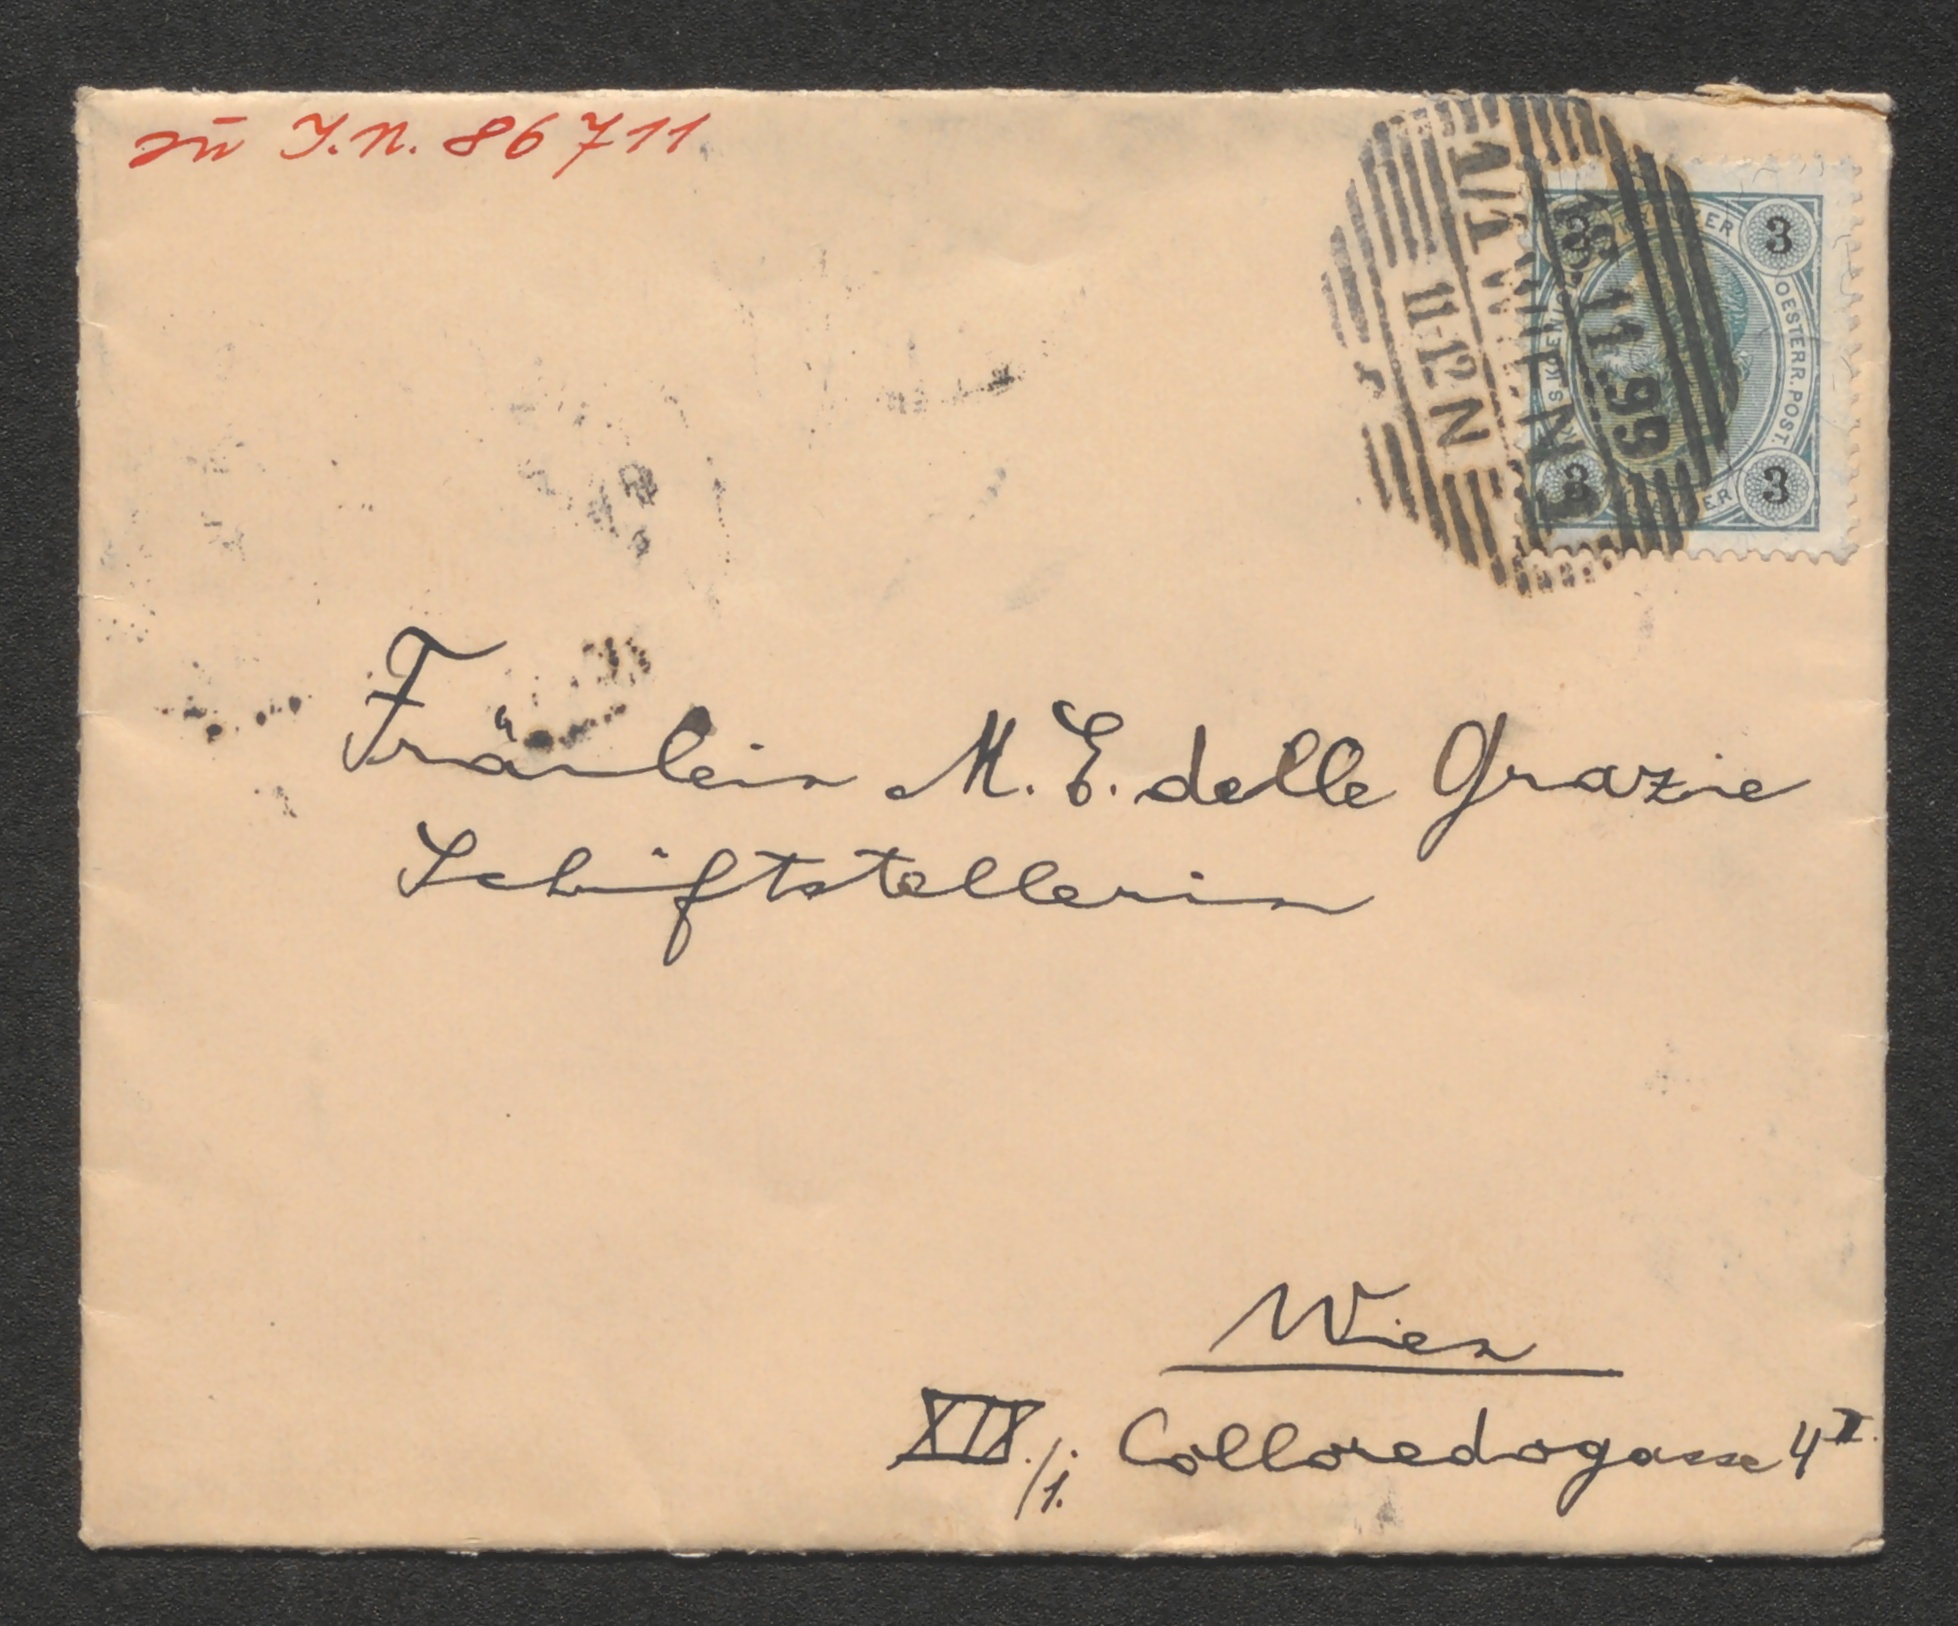 zu I.N. 86711
1/1 WIEN 1
18 11.99
11-12 N
3 3
OESTERR. POST.
3 3
Fräulein M. E. delle Grazie
Schriftstellerin
Wien
XIX./1. Colloredogasse 4 II.